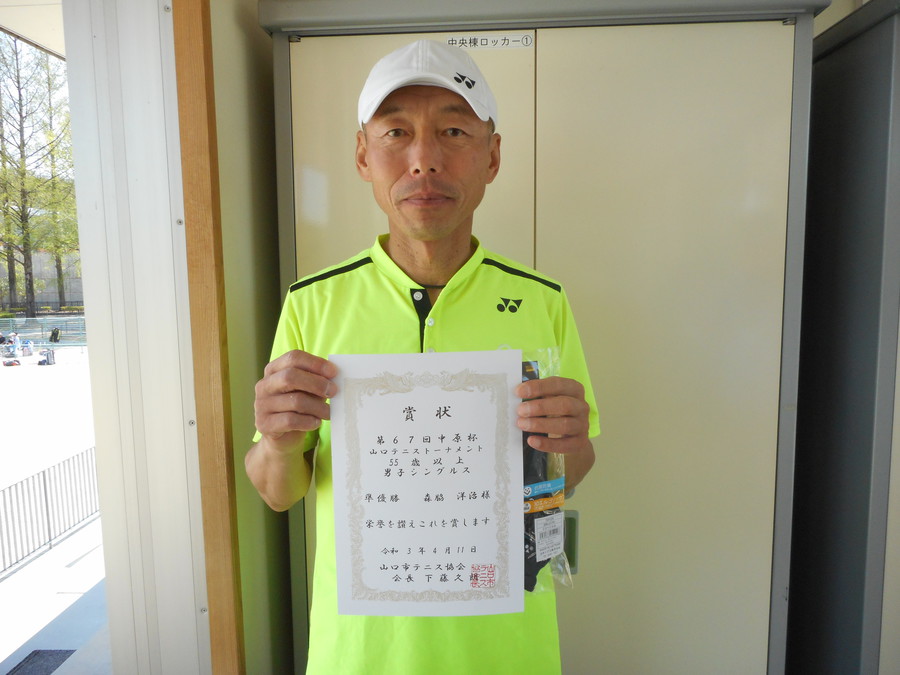 中央棟ロッカー①
賞状
第67回中原杯
山口テニストーナメント
55歳以上
男子シングルス
準優勝 森脇 洋治様
栄誉を讃えこれを賞します
令和 3年4月11日
山口市テニス協会
会長 下藤久